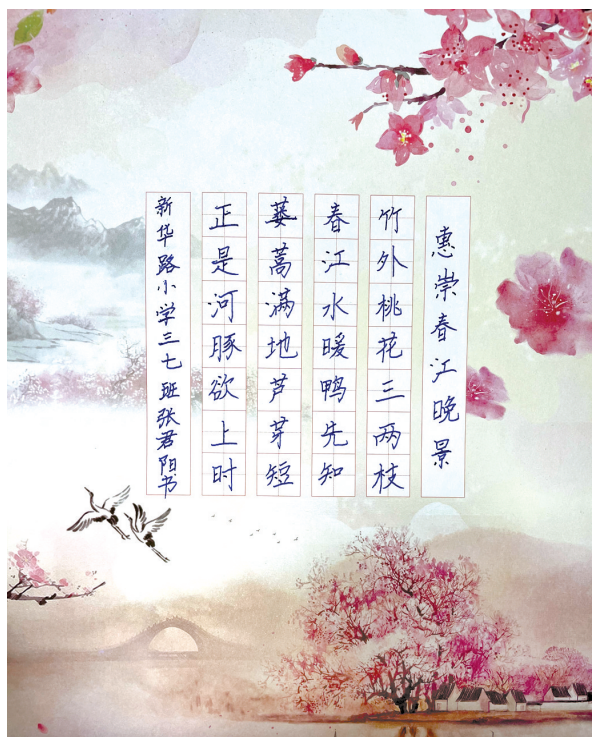 惠崇春江晚景
竹外桃花三两枝
春江水暖鸭先知
蒌蒿满地芦芽短
正是河豚欲上时
新华路小学三七班张君阳书